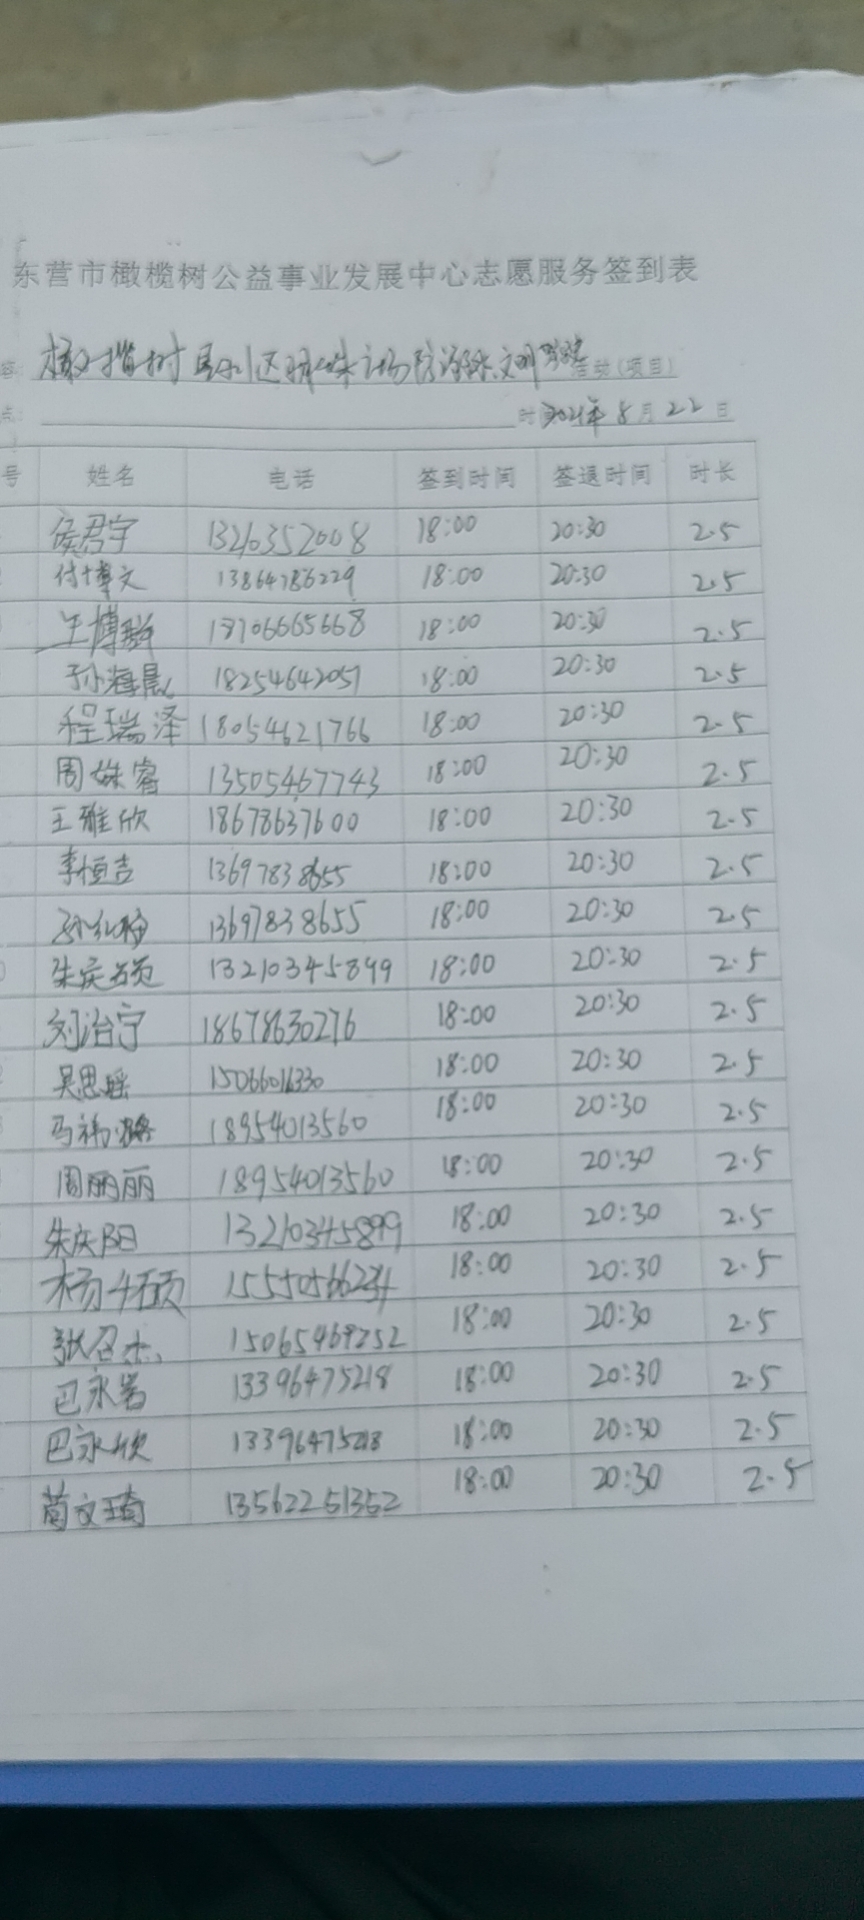 东营市橄榄树公益事业发展中心志愿服务签到表
橄榄树 区明珠广场防溺水文明 活动(项目)
时 2021年8月22日
号 姓名 电话 签到时间 签退时间 时长
侯君宇 13210352008 18:00 20:30 2.5
付博文 13864786229 18:00 20:30 2.5
王博 18706665668 18:00 20:30 2.5
孙海晨 18254642051 18:00 20:30 2.5
程瑞泽 18054621766 18:00 20:30 2.5
周姝睿 13505467743 18:00 20:30 2.5
王雅欣 18678637600 18:00 20:30 2.5
李恒吉 13697838655 18:00 20:30 2.5
孙红梅 13697838655 18:00 20:30 2.5
朱庆 13210345899 18:00 20:30 2.5
刘治宁 18678630276 18:00 20:30 2.5
吴思瑶 15066016330 18:00 20:30 2.5
马祎璐 18954013560 18:00 20:30 2.5
周丽丽 18954013560 18:00 20:30 2.5
朱庆阳 13210345899 18:00 20:30 2.5
杨千硕 18:00 20:30 2.5
张召杰 15065469252 18:00 20:30 2.5
巴永岩 13396475218 18:00 20:30 2.5
巴永欣 13396475218 18:00 20:30 2.5
苟文琦 13562251352 18:00 20:30 2.5